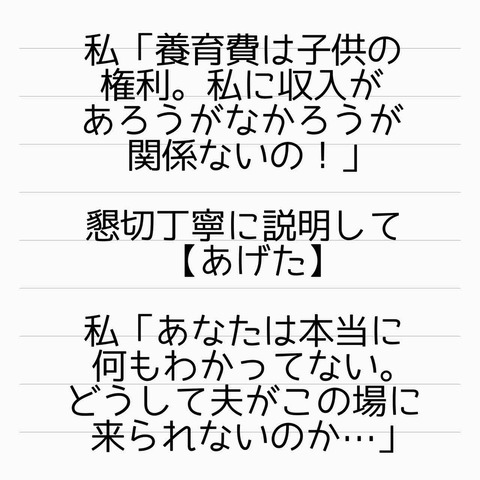 私「養育費は子供の
権利。私に収入が
あろうがなかろうが
関係ないの！」
懇切丁寧に説明して
【あげた】
私「あなたは本当に
何もわかってない。
どうして夫がこの場に
来られないのか…」